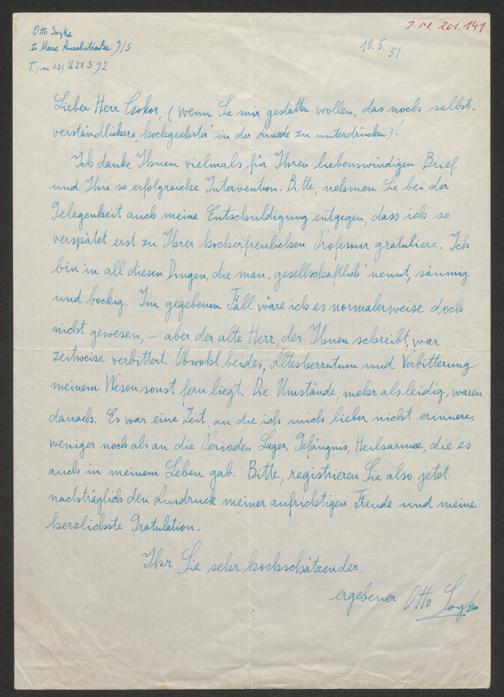 Otto Soyka
I Marc Aurelstraße 9/5
T.
J.N. 201.141
10.5.51
Lieber Herr Csokor, (wenn Sie mir gestatten wollen, das noch selbst-
verständlichere „hochgeehrter" in der Anrede zu unterdrücken)!
Ich danke Ihnen vielmals für Ihren liebenswürdigen Brief
und Ihre so erfolgreiche Intervention. Bitte, nehmen Sie bei der
Gelegenheit auch meine Entschuldigung entgegen, dass ich so
verspätet erst zu Ihrer hocherfreulichen Professur gratuliere. Ich
bin in all diesen Dingen, die man „gesellschaftlich" nennt, säumig
und bockig. Im gegebenen Fall wäre ich es normalerweise doch
nicht gewesen, – aber der alte Herr, der Ihnen schreibt, war
zeitweise verbittert. Obwohl beides, Altesherrntum und Verbitterung
meinem Wesen sonst fern liegt. Die Umstände, mehr als leidig, waren
danach. Es war eine Zeit, an die ich mich lieber nicht erinnere,
weniger noch als an die Perioden Lager, Gefängnis, Heilsarmee, die es
auch in meinem Leben gab. Bitte, registrieren Sie also jetzt
nachträglich den Ausdruck meiner aufrichtigen Freude und meine
herzlichste Gratulation.
Ihr Sie sehr hochschätzender
ergebener Otto Soyka